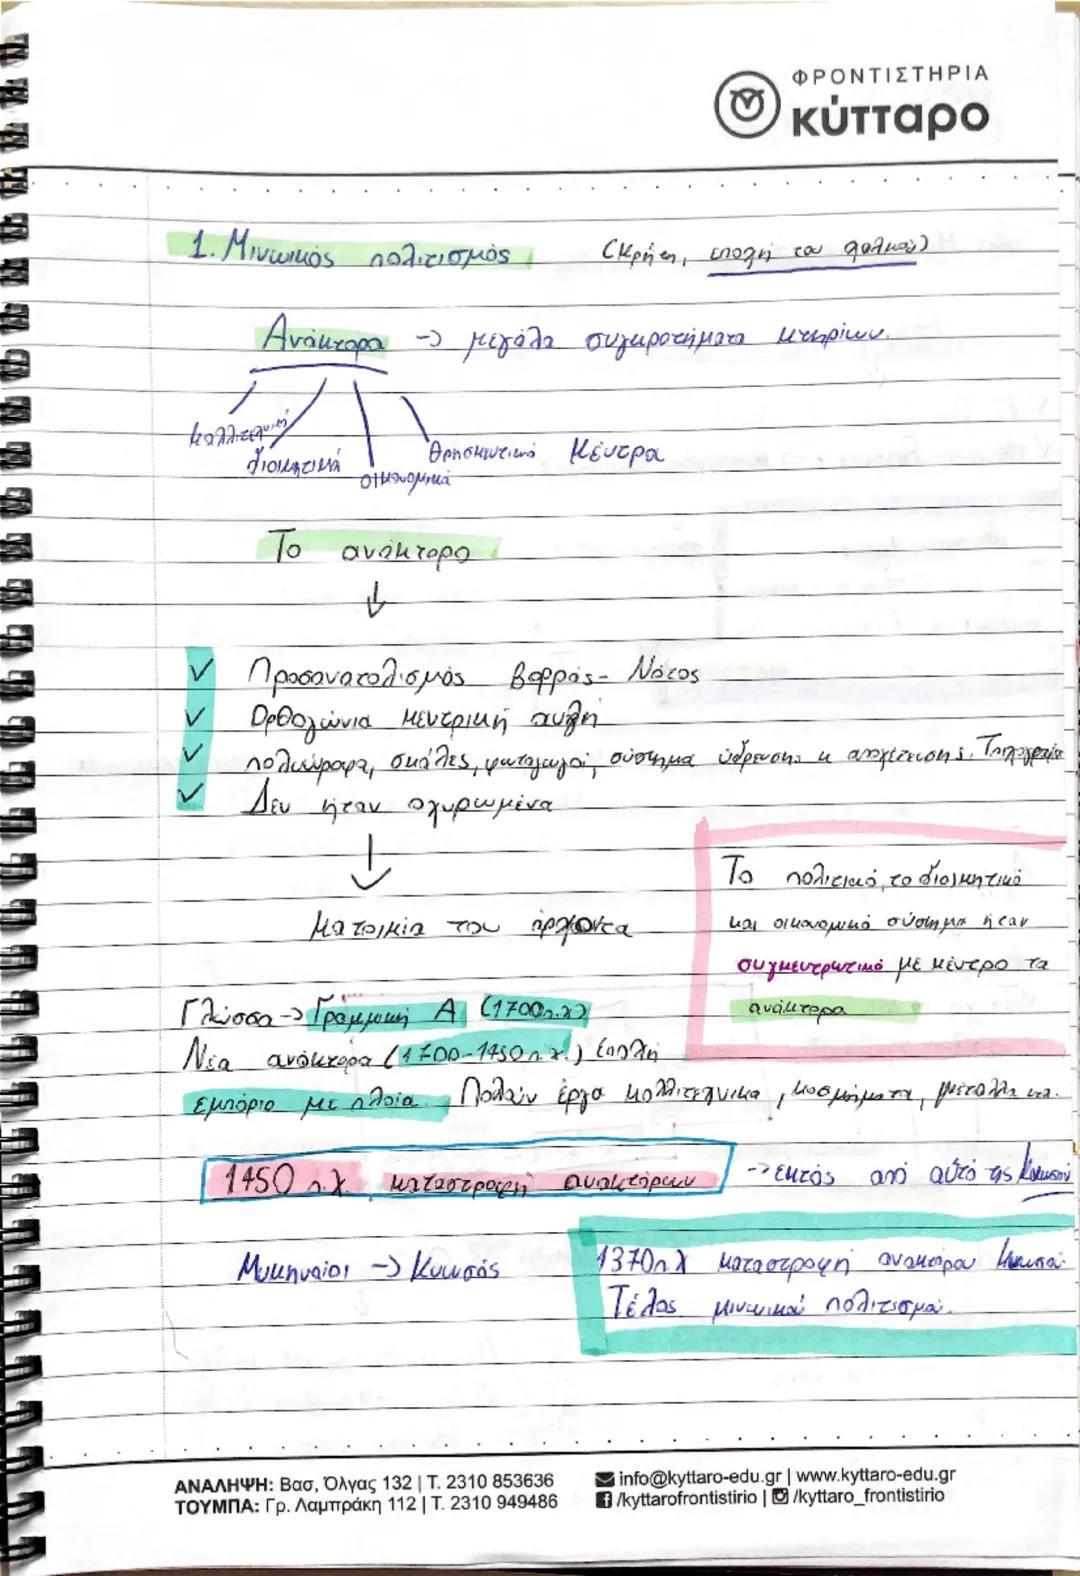 ΦΡΟΝΤΙΣΤΗΡΙΑ
κύτταρο
1. Μινωικός πολιτισμός (Κρήτη, εποχή του χαλκού)
Ανάκτορα -> μεγάλα συγκροτήματα κτηρίων.
καλλιτεχνικά
διοικητικά
οικονομικά
θρησκευτικά κέντρα
Το ανάκτορο
↓
✓ Προσανατολισμός Βορράς - Νότος
✓ Ορθογώνια κεντρική αυλή
✓ πολυώροφα, σκάλες, φωταγωγοί, σύστημα ύδρευσης κ αποχέτευσης. Τοιχογραφίες
✓ Δεν ήταν οχυρωμένα
↓
κατοικία του άρχοντα
Το πολιτικό, το διοικητικό
και οικονομικό σύστημα ήταν
συγκεντρωτικό με κέντρο τα
ανάκτορα
Γλώσσα -> Γραμμική Α (1700π.χ)
Νέα ανάκτορα (1700-1450 π.χ.)
εμπόριο με πλοία. Πολλών έργα καλλιτεχνικά, κοσμήματα, μέταλλα κτλ.
1450 π.χ. καταστροφή ανακτόρων -> εκτός από αυτό της Κνωσού
Μυκηναίοι -> Κνωσός
1370π.χ καταστροφή ανακτόρου Κνωσού.
Τέλος μινωικού πολιτισμού.
ΑΝΑΛΗΨΗ: Βασ, Όλγας 132 | Τ. 2310 853636
ΤΟΥΜΠΑ: Γρ. Λαμπράκη 112 | Τ. 2310 949486
info@kyttaro-edu.gr | www.kyttaro-edu.gr
/kyttarofrontistirio | /kyttaro_frontistirio